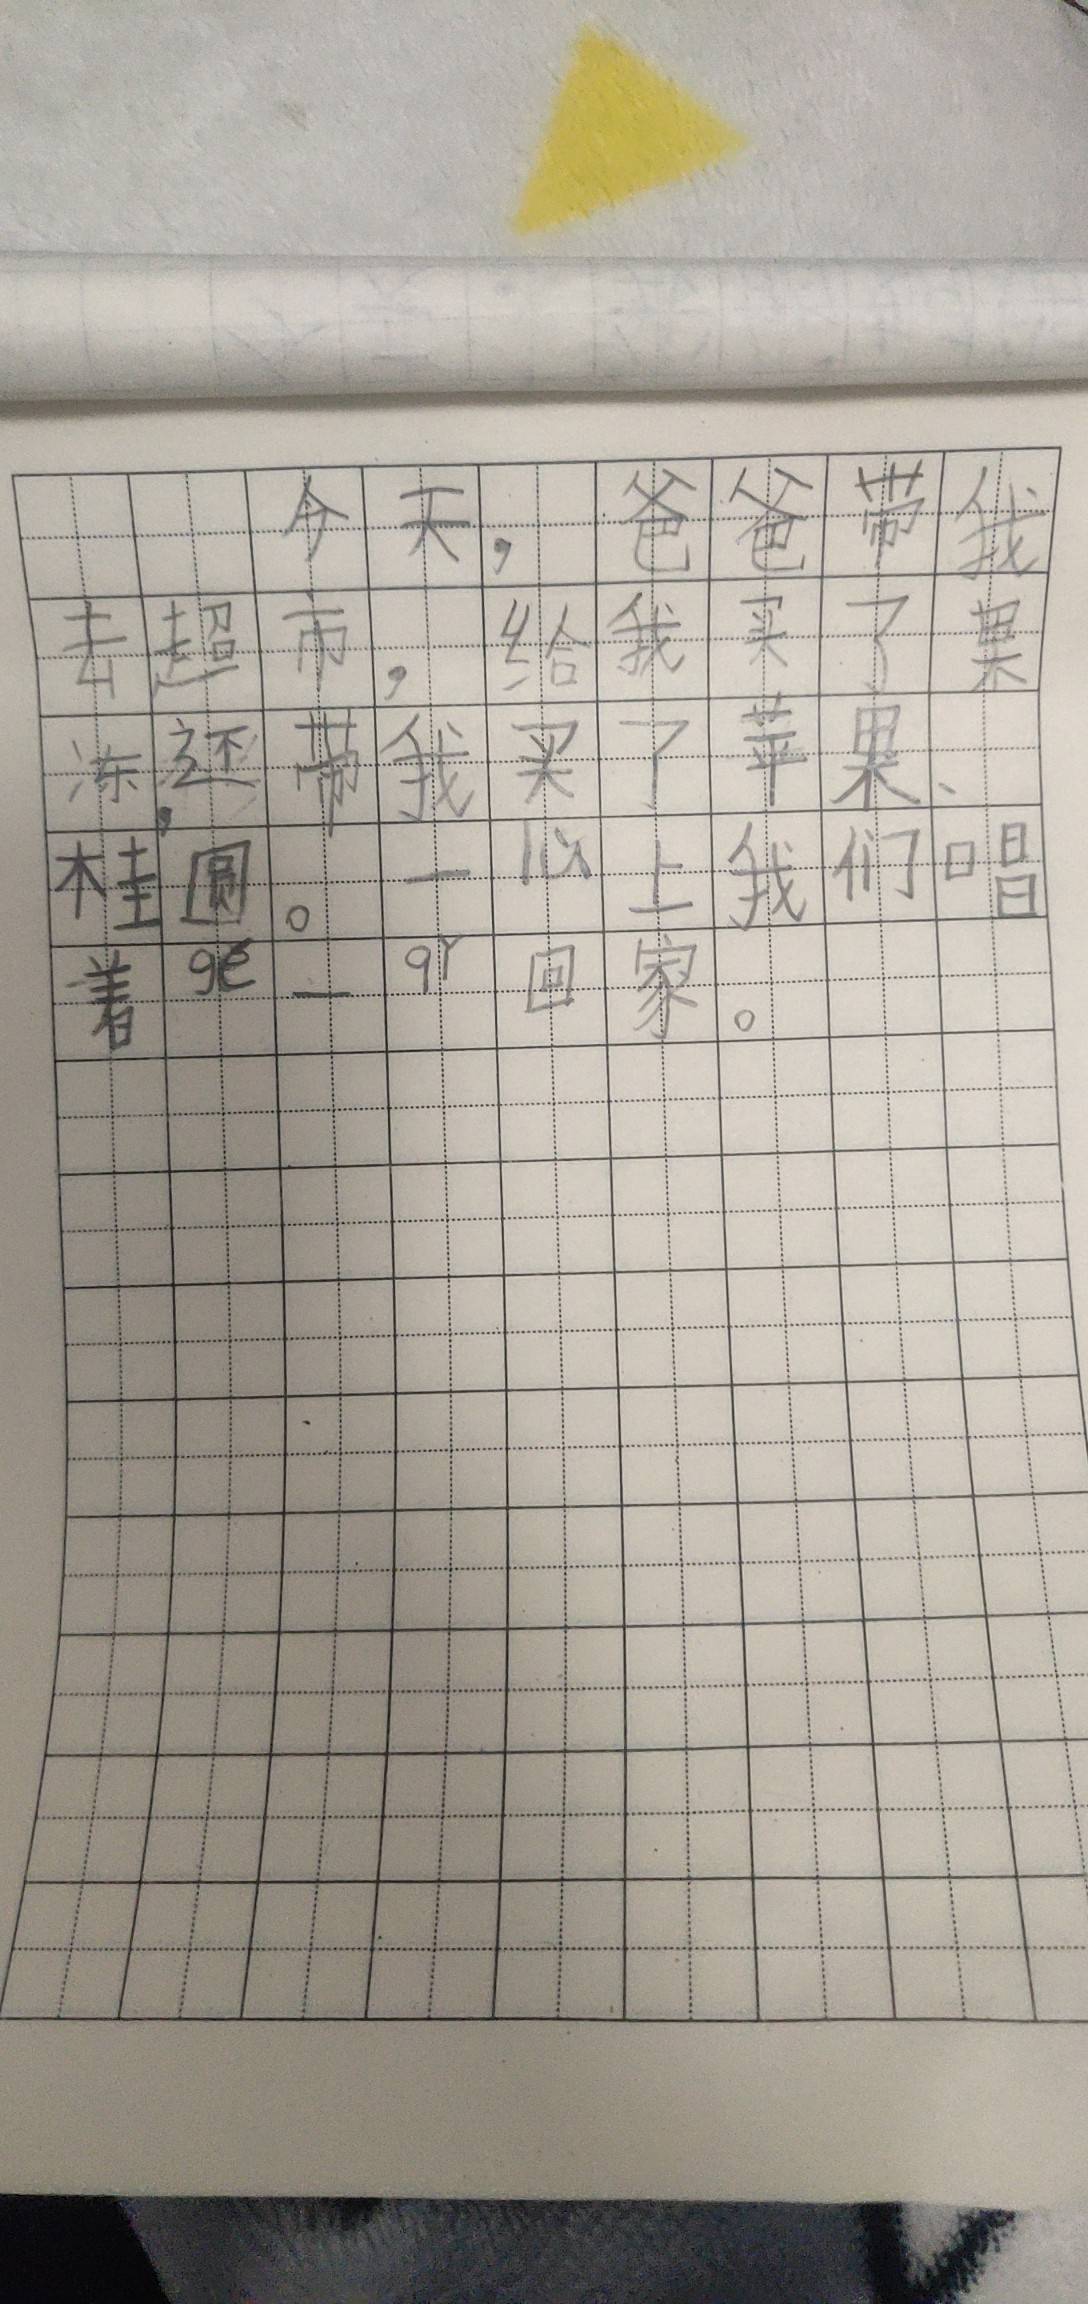 今天，爸爸带我
去超市，给我买了果
冻，还带我买了苹果、
桂圆。一以上我们唱
着gē一qǐ回家。